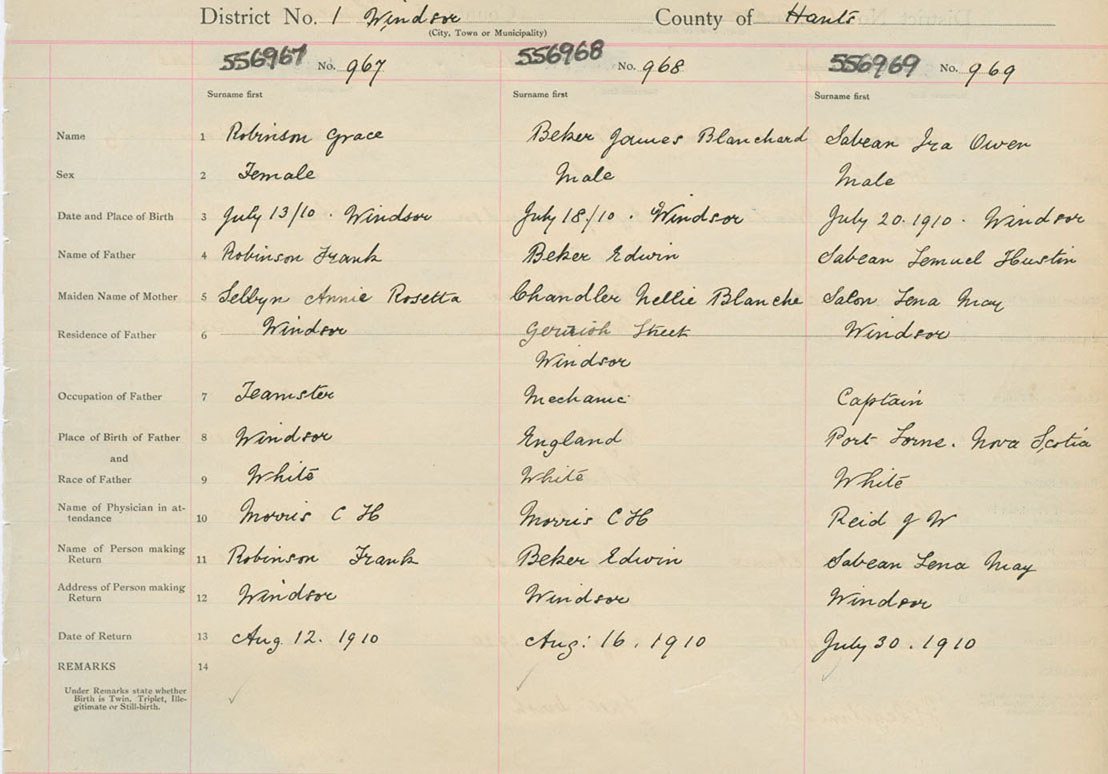 District No. 1 Windsor County of Hants
(City, Town or Municipality)
556967 No. 967 556968 No. 968 556969 No. 969
Surname first Surname first Surname first
Name 1 Robinson Grace Beker James Blanchard Sabean Ira Owen
Sex 2 Female Male Male
Date and Place of Birth 3 July 13/10 . Windsor July 18/10 . Windsor July 20. 1910 . Windsor
Name of Father 4 Robinson Frank Beker Edwin Sabean Lemuel Hustin
Maiden Name of Mother 5 Annie Rosetta Chandler Nellie Blanche Salon Lena May
Residence of Father 6 Windsor Street Windsor
Windsor
Occupation of Father 7 Teamster Mechanic Captain
Place of Birth of Father 8 Windsor England Port Lorne. Nova Scotia
and
Race of Father 9 White White White
Name of Physician in at-
tendance 10 Morris C H Morris C H Reid J W
Name of Person making
Return 11 Robinson Frank Beker Edwin Sabean Lena May
Address of Person making
Return 12 Windsor Windsor Windsor
Date of Return 13 Aug 12. 1910 Aug: 16. 1910 July 30. 1910
REMARKS 14
Under Remarks state whether
Birth is Twin. Triplet, Ille-
gitimate or Still-birth.